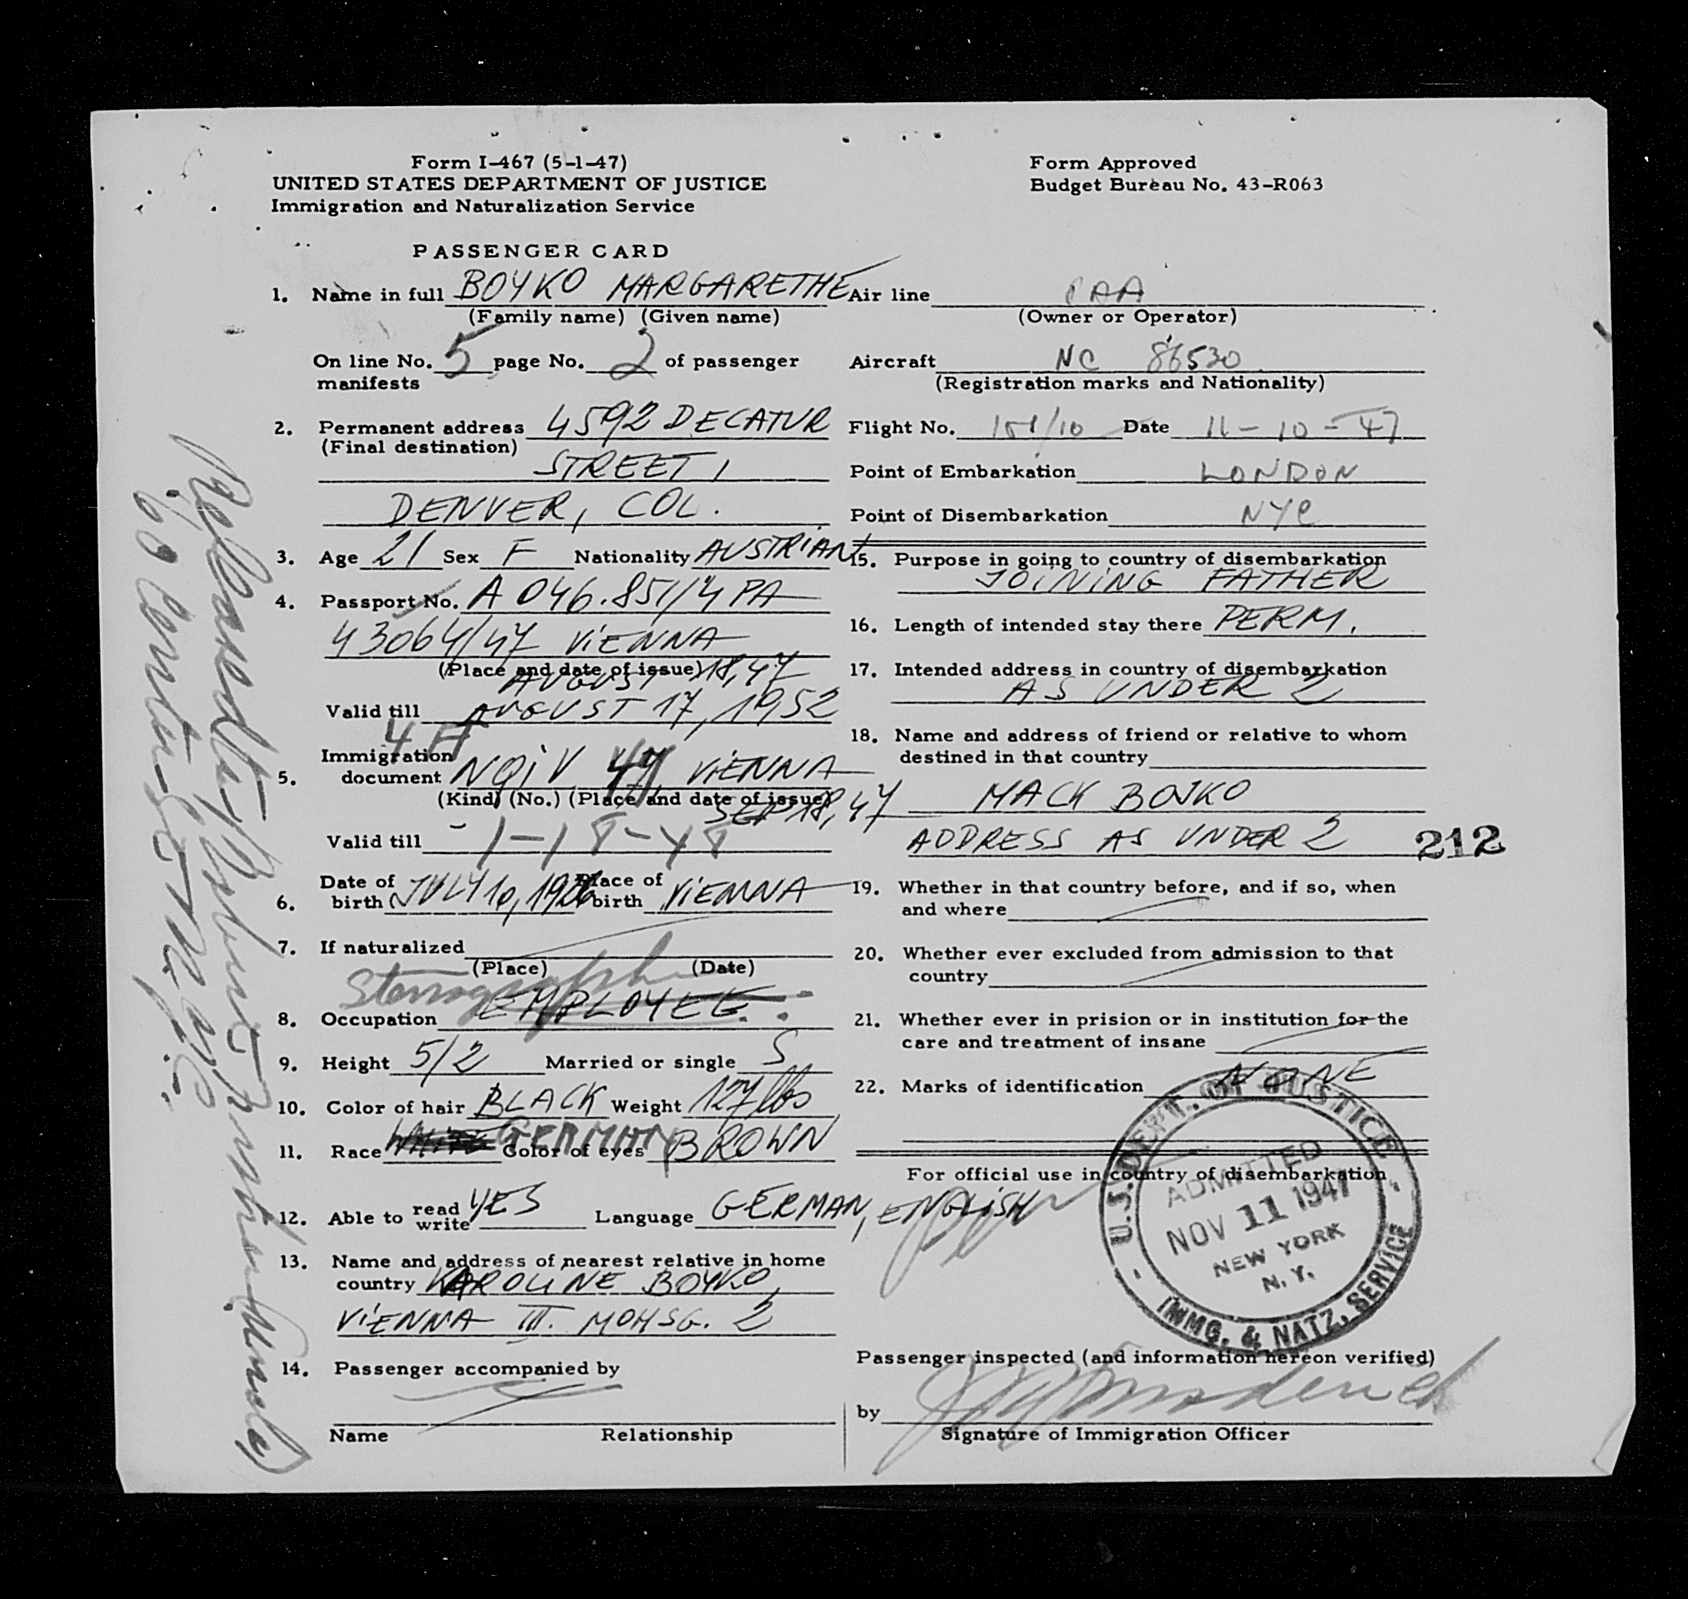 Form I-467 (5-1-47)
UNITED STATES DEPARTMENT OF JUSTICE
Immigration and Naturalization Service
Form Approved
Budget Bureau No. 43-R063
PASSENGER CARD
1. Name in full BOYKO MARGARETHE
(Family name) (Given name)
On line No. 5 page No. 2 of passenger
manifests
2. Permanent address 4592 DECATUR
(Final destination)
STREET,
DENVER, COL.
3. Age 21 Sex F Nationality AUSTRIAN
4. Passport No. A 046.851/4 PA
43064/47 VIENNA
(Place and date of issue) AUGUST 18, 47
Valid till AUGUST 17, 1952
4 A
5. Immigration
document NQIV 47, VIENNA
(Kind) (No.) (Place and date of issue)
SEP 18, 47
Valid till 1-18-48
6. Date of
birth JULY 10, 1926 Place of
birth VIENNA
7. If naturalized
(Place) (Date)
Stenographer
8. Occupation EMPLOYEE.
9. Height 5/2 Married or single S
10. Color of hair BLACK Weight 127 lbs
11. Race WHITE GERMAN Color of eyes BROWN
12. Able to read
write YES Language GERMAN, ENGLISH
13. Name and address of nearest relative in home
country KAROLINE BOYKO,
VIENNA III. MOHSG. 2
14. Passenger accompanied by
Name Relationship
Air line PAA
(Owner or Operator)
Aircraft NC 86530
(Registration marks and Nationality)
Flight No. 101/10 Date 11-10-47
Point of Embarkation LONDON
Point of Disembarkation NYC
15. Purpose in going to country of disembarkation
JOINING FATHER
16. Length of intended stay there PERM.
17. Intended address in country of disembarkation
AS UNDER 2
18. Name and address of friend or relative to whom
destined in that country
MACK BOJKO
ADDRESS AS UNDER 2
212
19. Whether in that country before, and if so, when
and where
20. Whether ever excluded from admission to that
country
21. Whether ever in prision or in institution for the
care and treatment of insane
22. Marks of identification NONE
For official use in country of disembarkation
U.S. DEPT. OF JUSTICE
ADMITTED
NOV 11 1947
NEW YORK
N. Y.
IMMG. & NATZ. SERVICE
Passenger inspected (and information hereon verified)
by
Signature of Immigration Officer